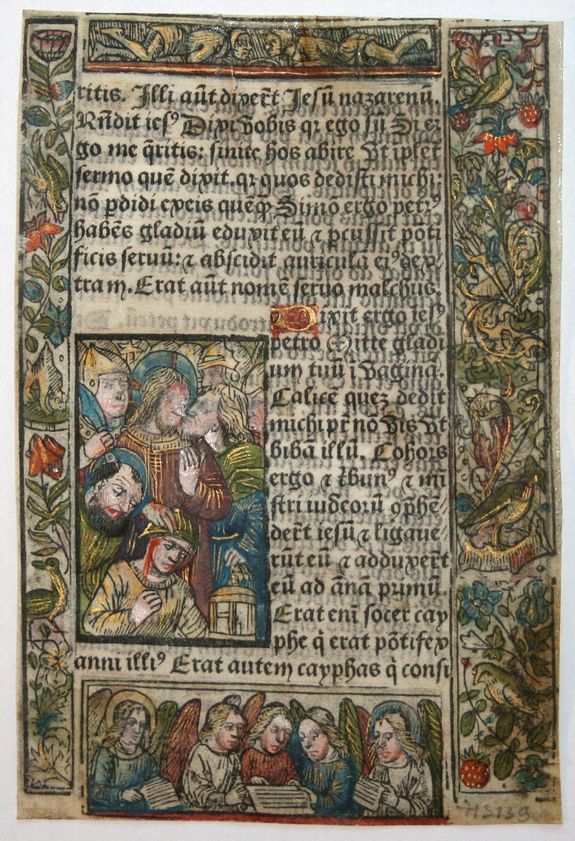 ritis. Illi aūt dixeřt Jesū nazarenū.
Rñdit iesꝰ Dixi vobis qꝛ ego sū Si er
go me q̄ritis: sinite hos abire Vt iplet̄
sermo quē dixit. qꝛ quos dedisti michi
nō ꝑdidi ex eis quēq̄ Simō ergo petrꝰ
habēs gladiū eduxit eū ⁊ ꝑcussit pōti
ficis seruū: ⁊ abscidit auriculā eiꝰ dex
tram. Erat aūt nomē seruo malchus.
Dixit ergo iesꝰ
petro Mitte gladi
um tuū ī vagina.
Calicē quez dedit
michi pr̄ nō vis vt
bibā illū. Cohors
ergo ⁊ tbunꝰ ⁊ mi
stri iudeorū cōphē
deřt iesū ⁊ ligaue
rūt eū ⁊ adduxeřt
eū ad annā pimū.
Erat eni socer cay
phe q̇ erat pōtifex
anni illiꝰ Erat autem cayphas q̇ consi
HS139